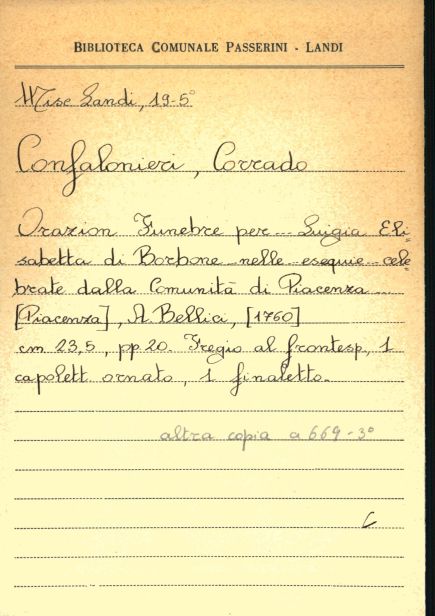 BIBLIOTECA COMUNALE PASSERINI - LANDI
Misc Landi, 19-5°
Confalonieri, Corrado
Orazion Funebre per ... Luigia Eli"
sabetta di Borbone nelle esequie cele"
brate dalla Comunità di Piacenza ...
[Piacenza], A. Bellici, [1760]
cm 23,5, pp 20. Fregio al frontesp., 1
capolett. ornato, 1 finaletto.
altra copia a 669-3°
C